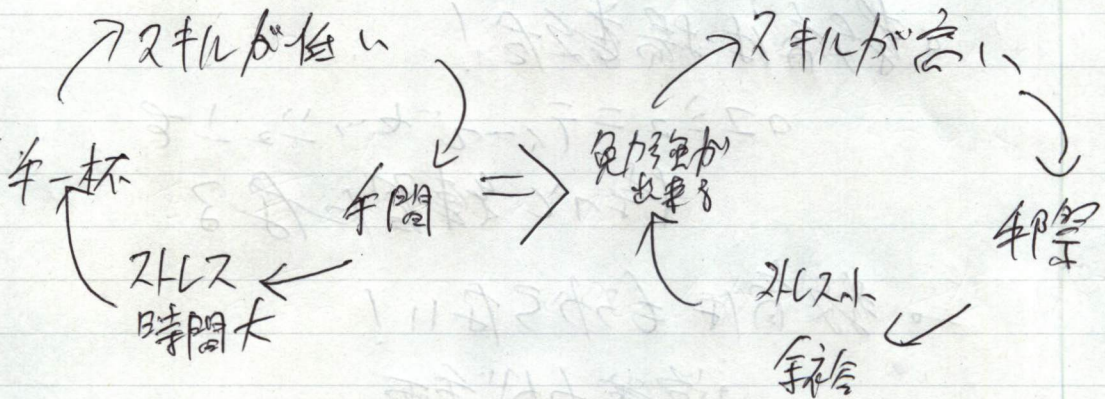 スキルが低い
手一杯
手間
ストレス
時間大
スキルが高い
勉強が
出来る
手際
ストレス小
余裕